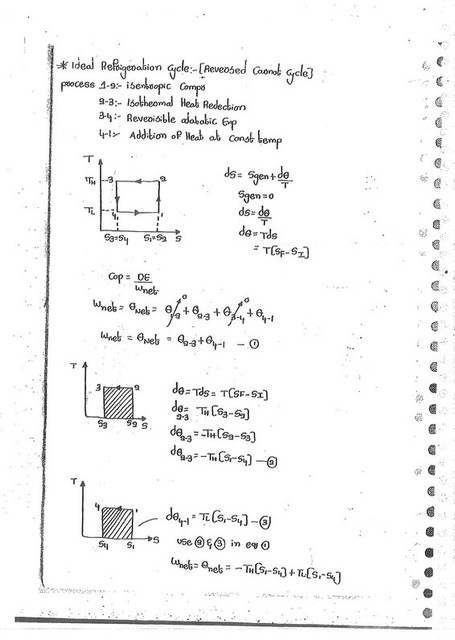 * Ideal Refrigeration Cycle:- [Reversed Carnot Cycle]
process 1-2:- isentropic Comp
2-3:- Isothermal Heat Rejection
3-4:- Reversible adabatic Exp
4-1:- Addition of Heat at Const temp
T
TH 3 2
TL 4 1
S3=S4 S1=S2 S
dS = Sgen + dQ/T
Sgen=0
dS = dQ/T
dQ = Tds
= T[SF-SI]
Cop = DE/Wnet
Wnet = QNet = Q1-2 0 + Q2-3 + Q3-4 0 + Q4-1
Wnet = QNet = Q2-3 + Q4-1 — ①
T
3 2
S3 S2 S
dQ = Tds = T[SF-SI]
dQ2-3 = TH[S3-S2]
dQ2-3 = -TH[S2-S3]
dQ2-3 = -TH[S1-S4] — ②
T
4 1
S4 S1 S
dQ4-1 = TL[S1-S4] — ③
use ② & ③ in eq ①
Wnet = Qnet = -TH[S1-S4] + TL[S1-S4]